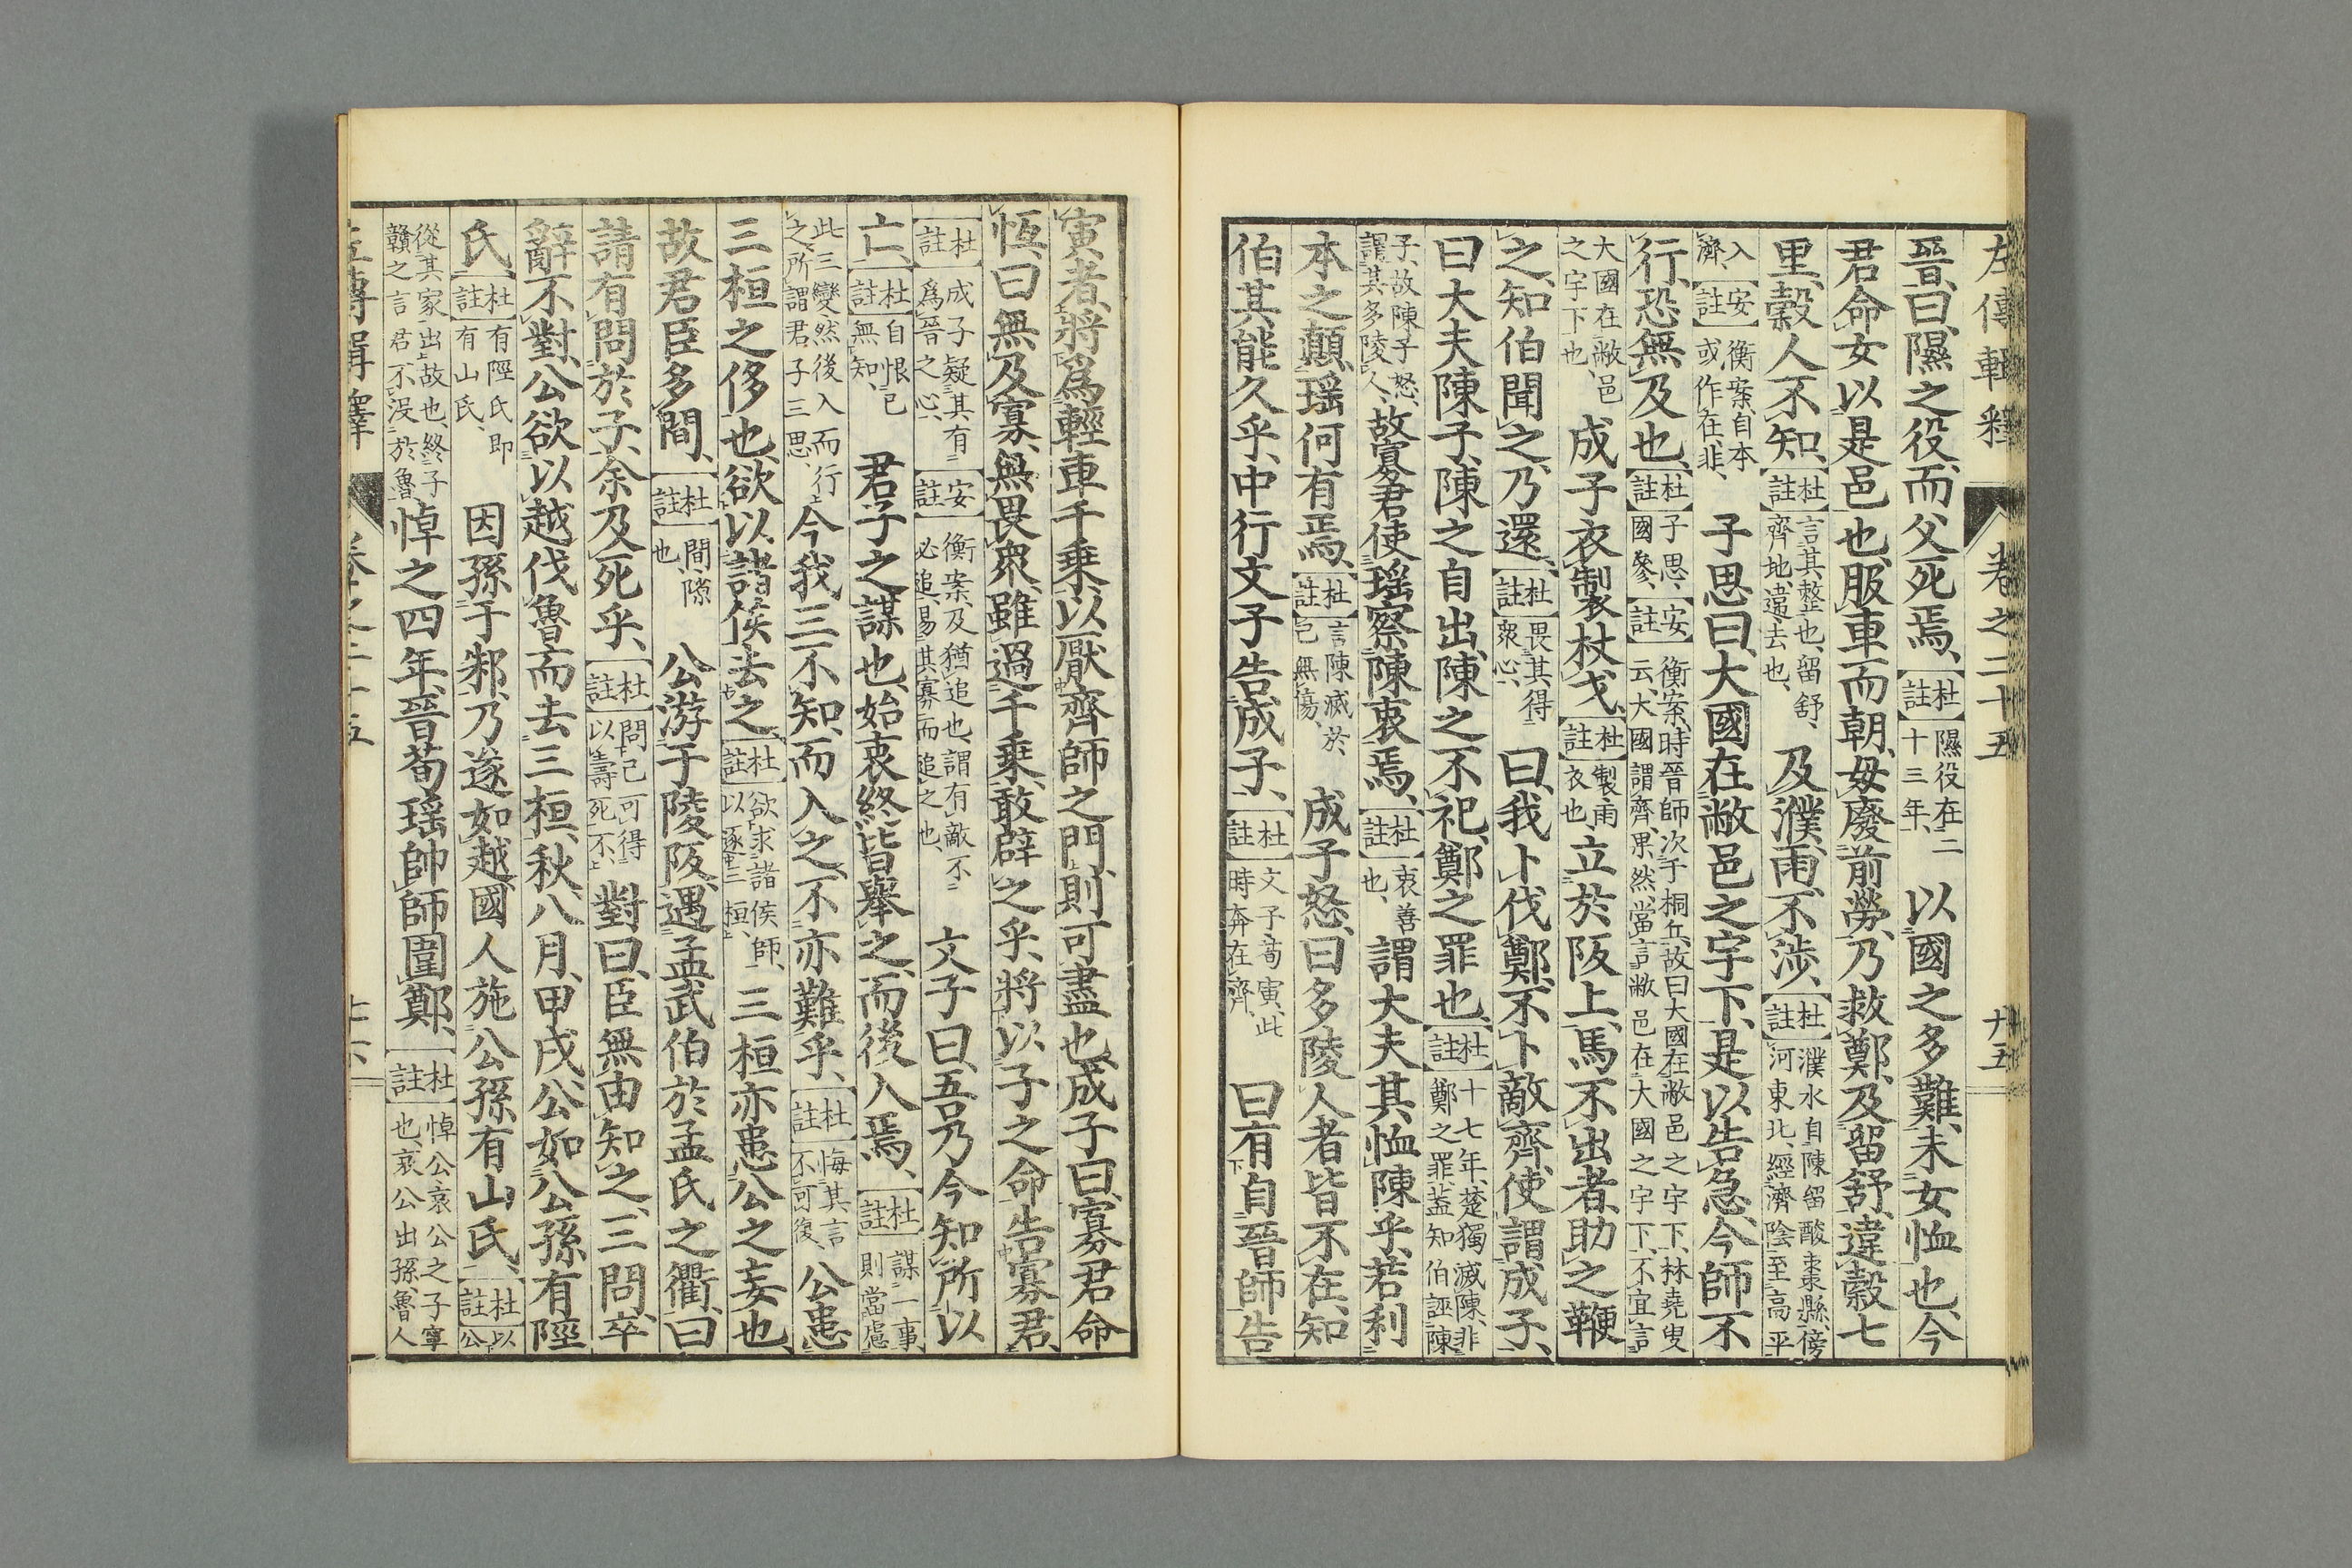 左傳輯釋 卷之二十五 十五
晉曰隰之役而父死焉【杜註】隰役在二十三年以國之多難未女恤也今
君命女以是邑也服車而朝毋廢前勞乃救鄭及留舒違穀七
里穀人不知【杜註】言其整也留舒齊地違去也及濮雨不涉【杜註】濮水自陳留酸棗縣傍河東北經濟陰至高平
入濟【安註】衡案自本或作在非子思曰大國在敝邑之宇下是以告急今師不
行恐無及也【杜註】子思國參【安註】衡案時晉師次于桐丘故曰大國在敝邑之宇下林堯叟云大國謂齊果然當言敝邑在大國之宇下不宜言
大國在敝邑之宇下也成子衣製杖戈【杜註】製雨衣也立於阪上馬不出者助之鞭
之知伯聞之乃還【杜註】畏其得衆心曰我卜伐鄭不卜敵齊使謂成子
曰大夫陳子陳之自出陳之不祀鄭之罪也【杜註】十七年楚獨滅陳非鄭之罪蓋知伯誣陳
子故陳子怒謂其多陵人故寡君使瑶察陳衷焉【杜註】衷善也謂大夫其恤陳乎若利
本之顛瑶何有焉【杜註】言陳滅於己無傷成子怒曰多陵人者皆不在知
伯其能久乎中行文子告成子【杜註】文子荀寅此時奔在齊曰有自晉師告
寅者將爲輕車千乗以厭齊師之門則可盡也成子曰寡君命
恆曰無及寡無畏衆雖過千乗敢辟之乎將以子之命告寡君
【杜註】成子疑其有爲晉之心【安註】衡案及猶追也謂有敵不必追易其寡而追之也文子曰吾乃今知所以
亡【杜註】自恨己無知君子之謀也始衷終皆舉之而後入焉【杜註】謀一事則當慮
此三變然後入而行之所謂君子三思今我三不知而入之不亦難乎【杜註】悔其言不可復公患
三桓之侈也欲以諸侯去之【杜註】欲求諸侯師以逐三桓三桓亦患公之妄也
故君臣多間【杜註】間隙也公游于陵阪遇孟武伯於孟氏之衢曰
請有問於子余及死乎【杜註】問己可得以壽死不對曰臣無由知之三問卒
辭不對公欲以越伐魯而去三桓秋八月甲戌公如公孫有陘
氏【杜註】有陘氏即有山氏因孫于邾乃遂如越國人施公孫有山氏【杜註】以公
從其家出故也終子贛之言君不沒於魯悼之四年晉荀瑶帥師圍鄭【杜註】悼公哀公之子寧也哀公出孫魯人